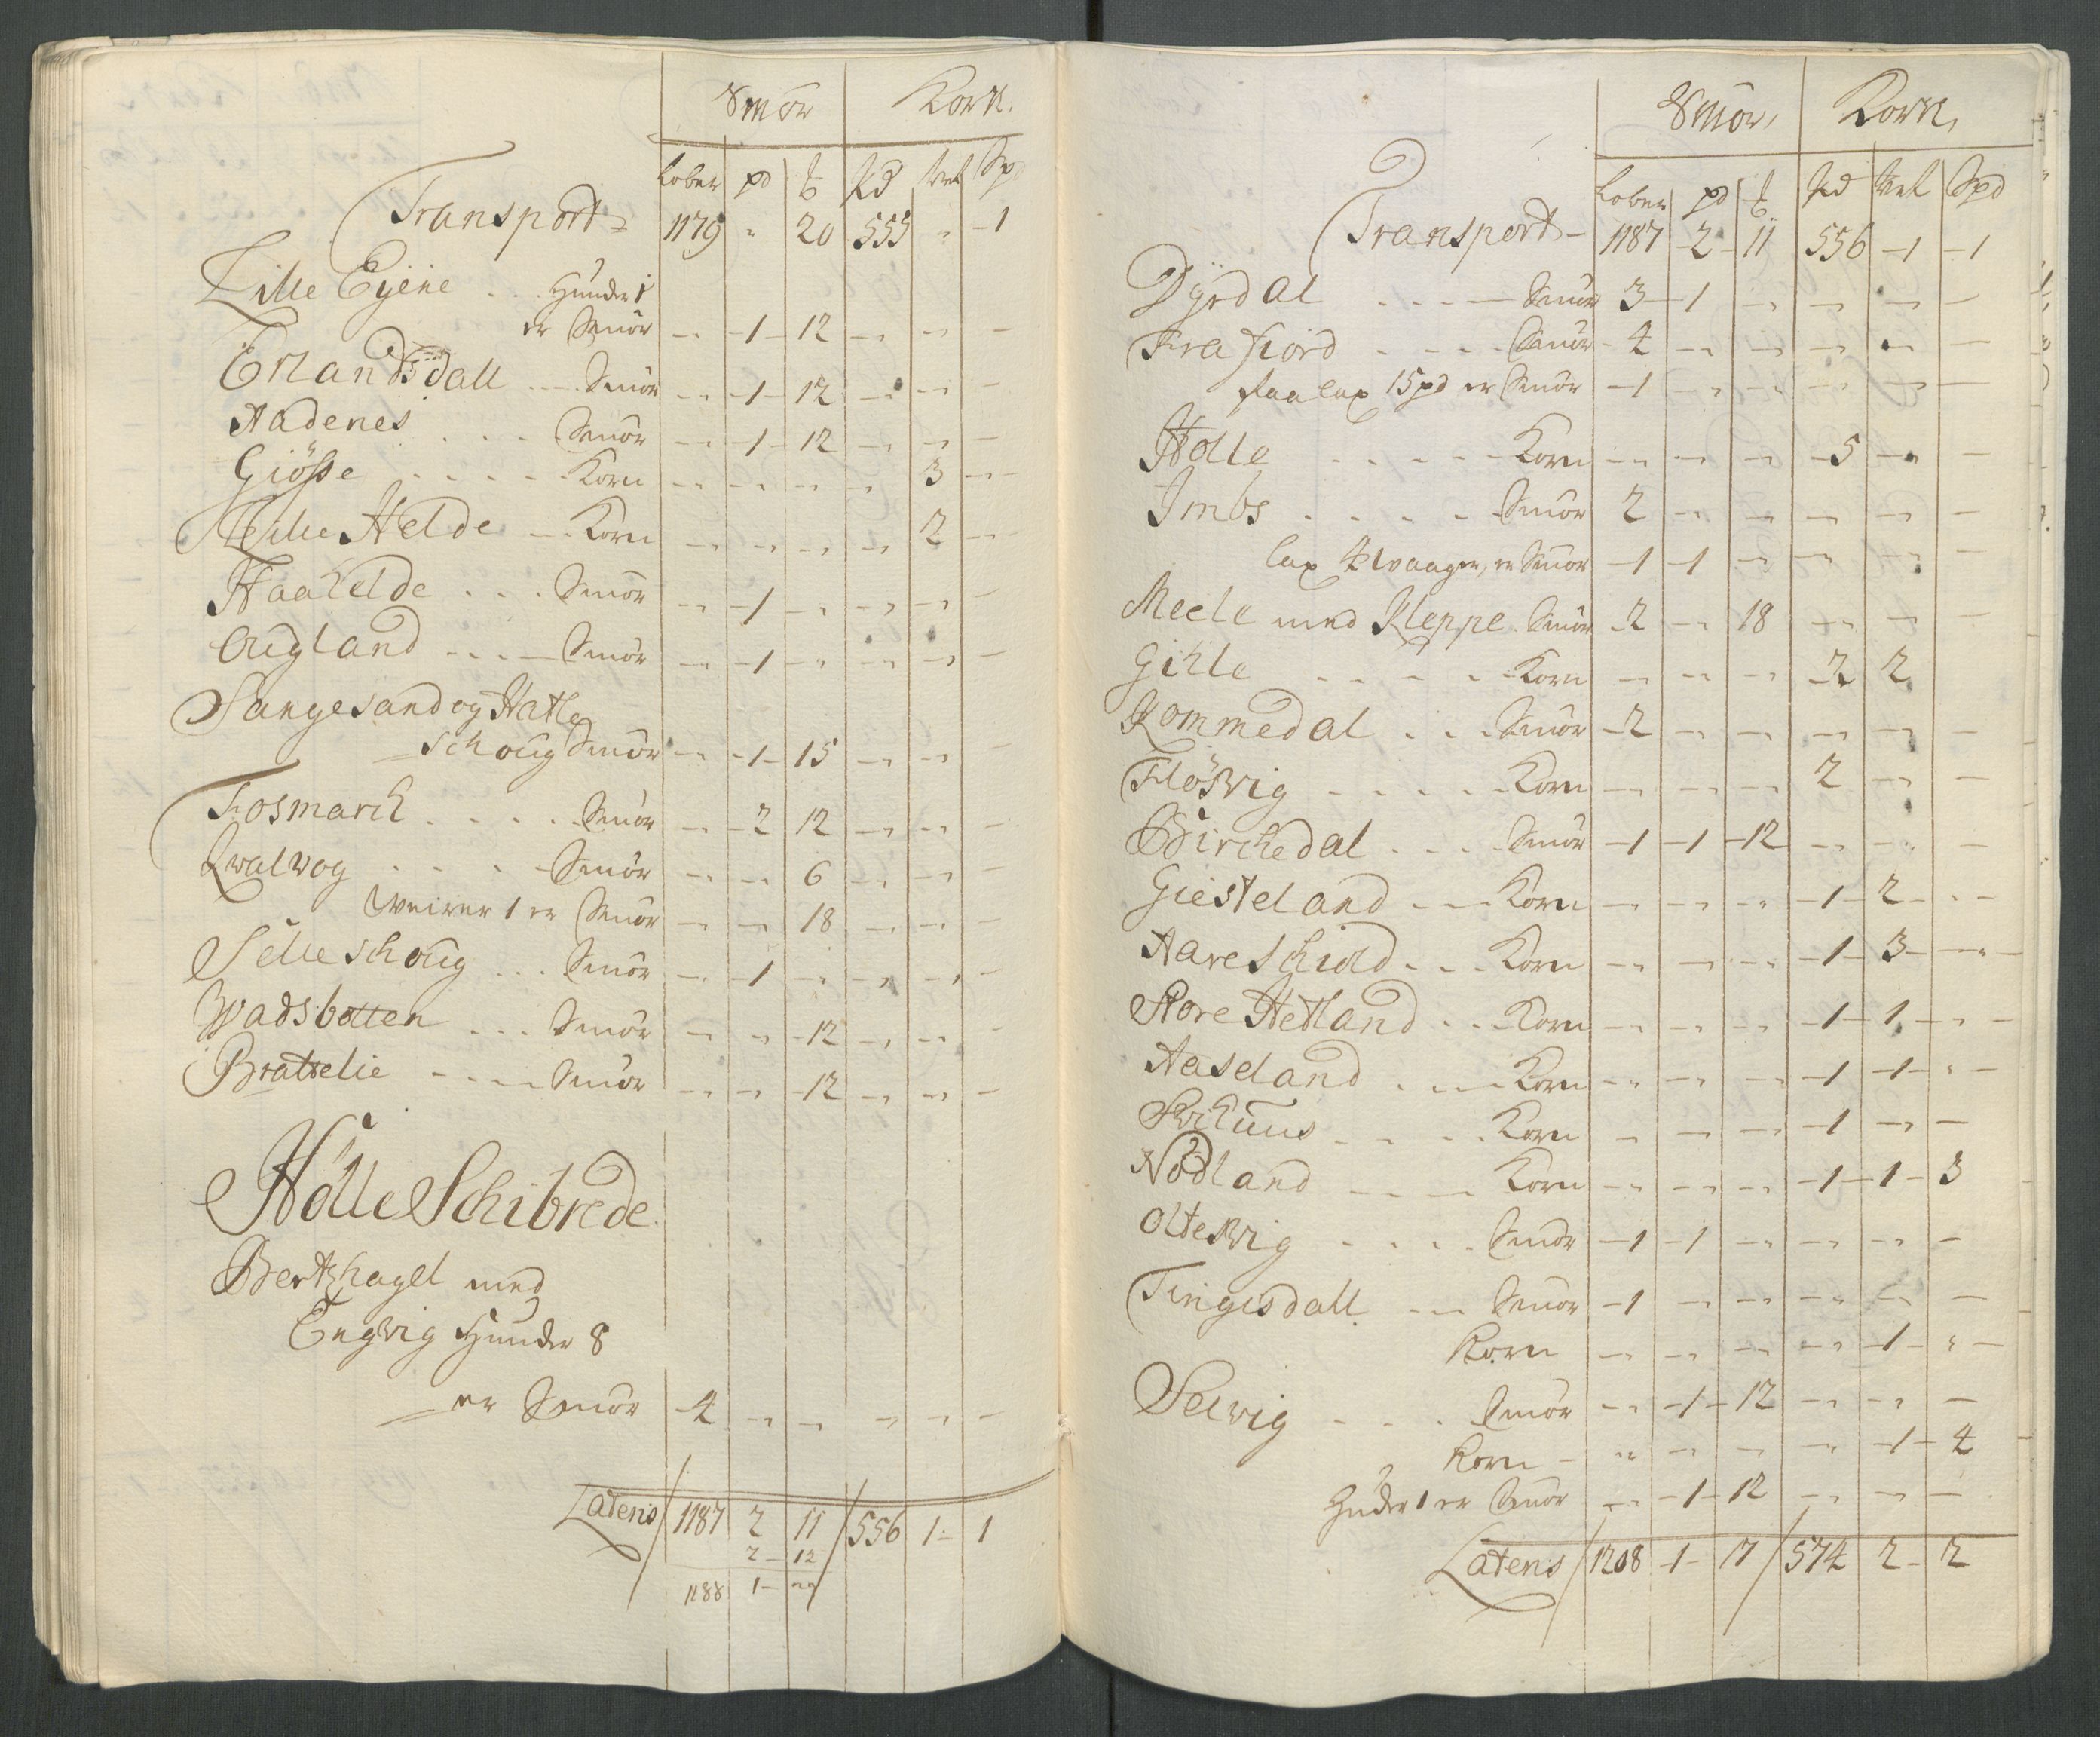 Smör Korn.
Lober pd ℔ Pd Vet Sp
Transport 1179 " 20 555 " 1
Lille Eyene . . . Hunder 1
er Smör " 1 12 " " "
Erlandsdall . . . Smör " 1 12 " " "
Aadenes . . . Smör " 1 12 " " "
Giösse . . . . . Korn " " " " 3 "
Lille Helde . . Korn " " " " 2 "
Haahelde . . . Smör " 1 " " " "
Augland . . . Smör " 1 " " " "
Sangesand og Hatle
schoug Smör " 1 15 " " "
Fosmarch . . . . Smör " 2 12 " " "
Qvalvog . . . . Smör " " 6 " " "
1 er Smör " " 18 " " "
Selleschoug . . . Smör " 1 " " " "
Wadsbotten . . . Smör " " 12 " " "
Brattelie . . . Smör " " 12 " " "
Hölle Schibrede.
Bertzhagel med
Engvig Hunder 8
er Smör 4 " " " " "
Latens 1187 2 11 556 1 1
2 12
1188 1
Smör, Korn,
Lober pd ℔ Pd Vet Spd
Transport 1187 2 11 556 1 1
Dÿrdal . . . . Smör 3 1 " " " "
Frafiord . . . . Smör 4 " " " " "
lax 15 pd er Smör 1 " " " " "
Holle . . . . . Korn " " " 5 " "
Imbs . . . . Smör 2 " " " " "
lax 4 waager, er Smör 1 1 " " " "
Meele med Kleppe Smör 2 " 18 " " "
Gille . . . . . Korn " " " 2 2
Kommedal . . . Smör 2 " " " " "
Flösvig . . . . . Korn " " " 2 " "
Birchedal . . . Smör 1 1 12 " " "
Giesteland . . . Korn " " " 1 2 "
Aareschiold . . . Korn " " " 1 3 "
Store Hetland . . Korn " " " 1 1 "
Aaseland . . . Korn " " " 1 1 "
. . . . Korn " " " 1 " "
Nödland . . . Korn " " " 1 1 3
Oltesvig . . . . Smör 1 1 " " " "
Tingisdall . . . Smör 1 " " " " "
Korn " " " " 1 "
Selvig . . . Smör " 1 12 " " "
Korn " " " " 1 4
Huder 1 er Smör " 1 12 " " "
Latens 1208 1 17 574 2 2